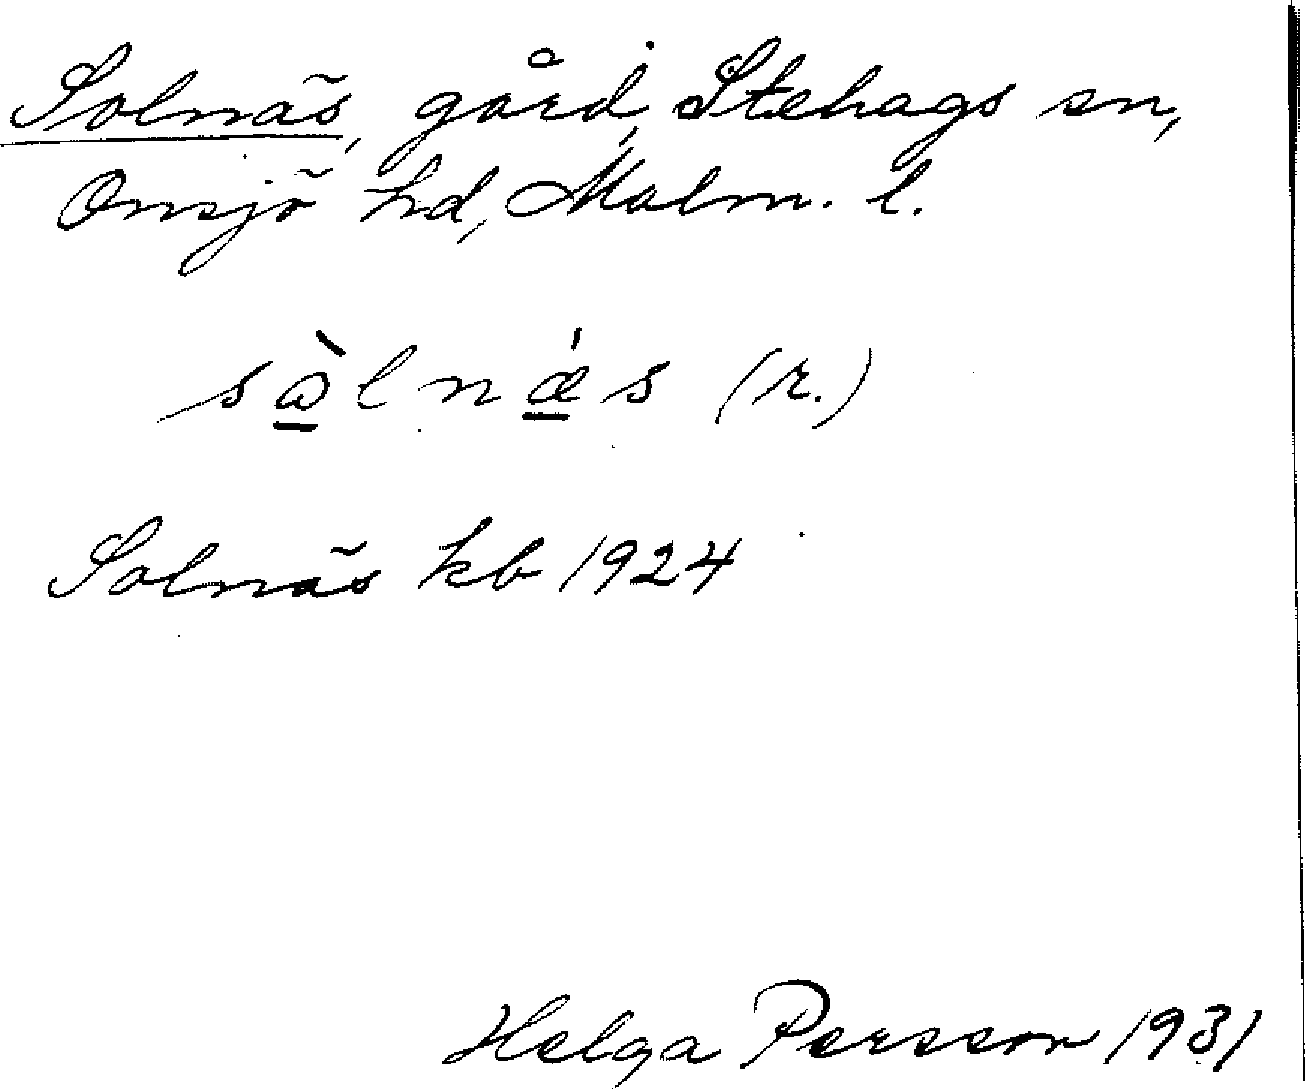 Solnäs, gård, Stehags sn,
Onsjö hd, Malm. l.
sὼ̱lnǽ̱s (r.)
Solnäs kb 1924
Helga Persson 1931